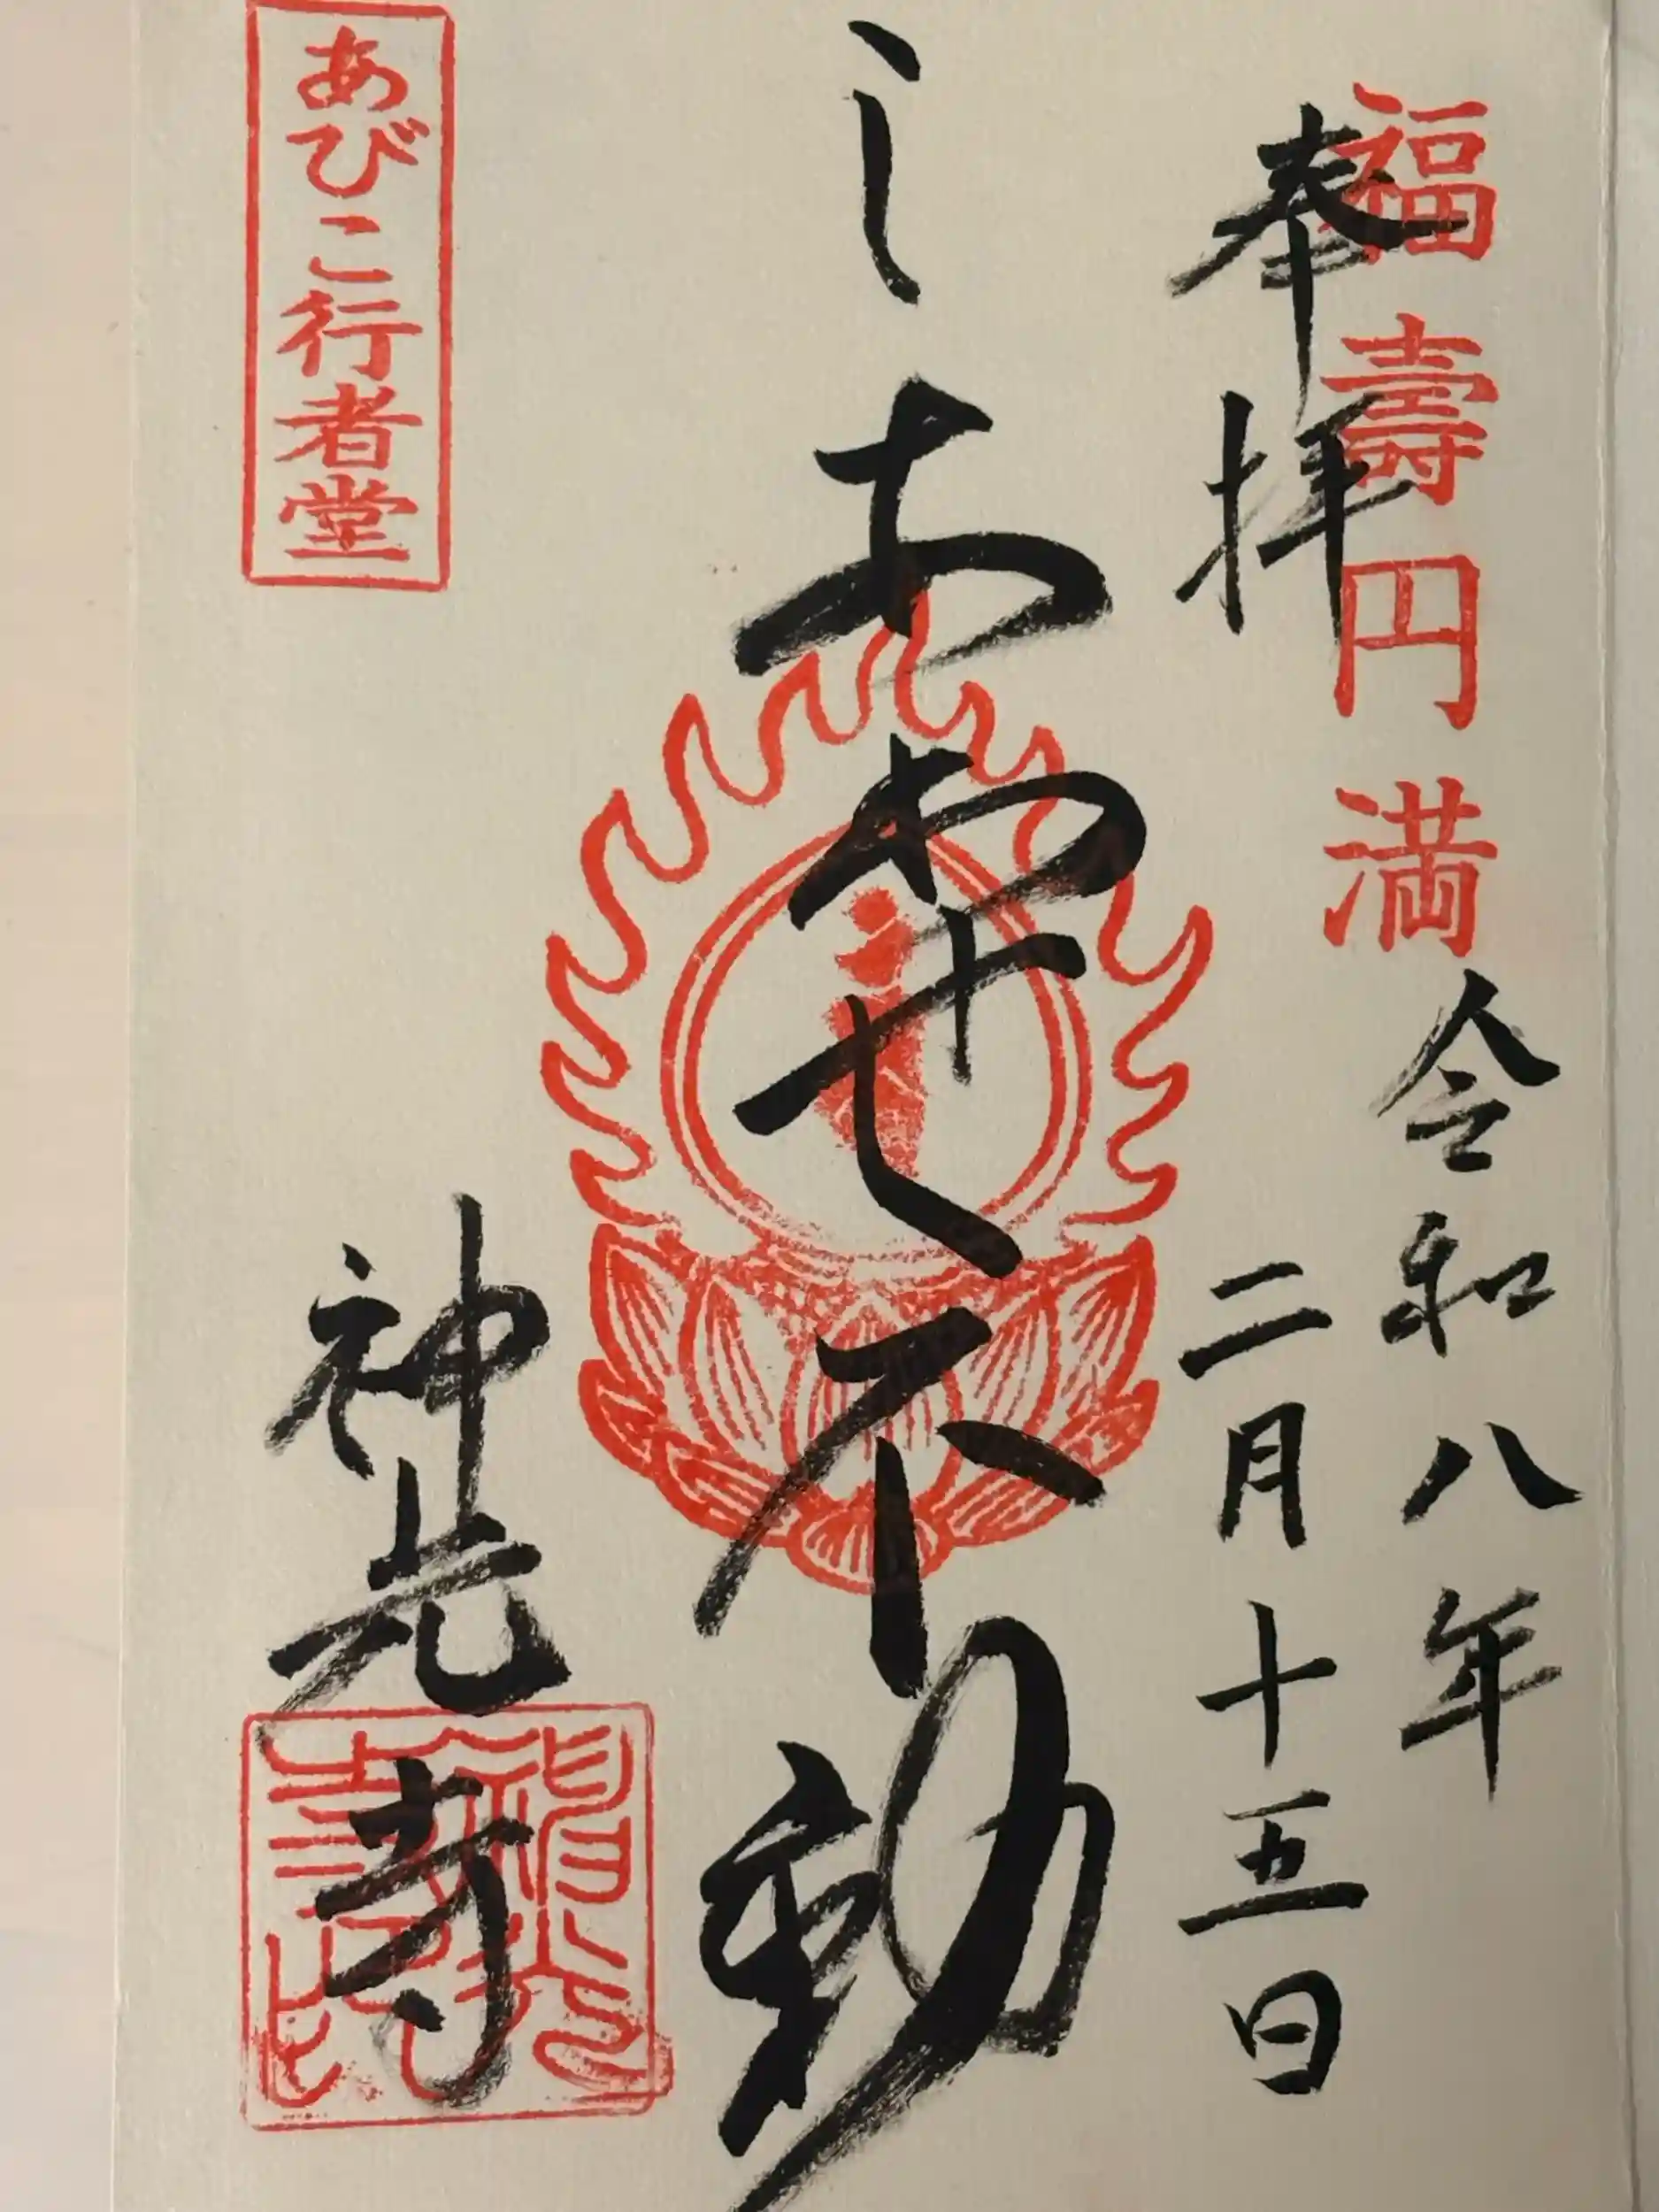 福壽円満
奉拝
令和八年
二月十五日
不動
あびこ行者堂
神光寺